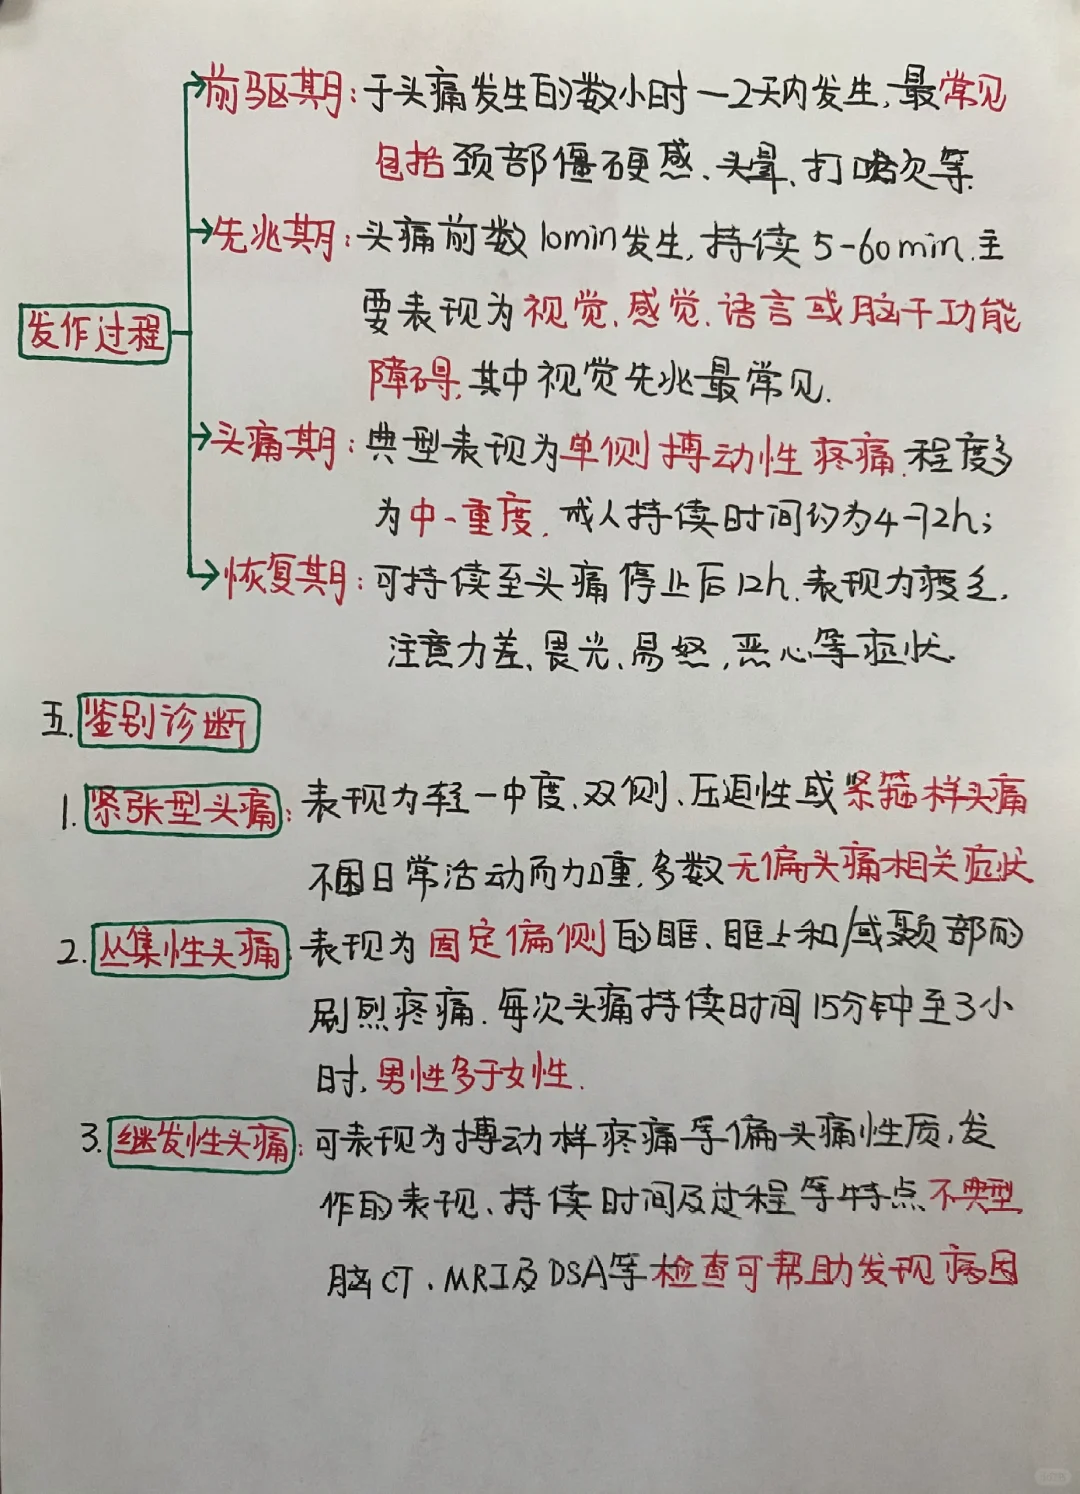 前驱期:于头痛发生的数小时一2天内发生,最常见
包括颈部僵硬感、头晕、打哈欠等.
先兆期:头痛前数10min发生,持续5-60min.主
要表现为视觉、感觉、语言或脑干功能
障碍,其中视觉先兆最常见.
发作过程
头痛期:典型表现为单侧搏动性疼痛.程度多
为中-重度.成人持续时间约为4-72h;
恢复期:可持续至头痛停止后12h.表现为疲乏,
注意力差、畏光、易怒,恶心等症状.
五.鉴别诊断
1.紧张型头痛:表现为轻一中度、双侧、压迫性或紧箍样头痛
不因日常活动而加重,多数无偏头痛相关症状
2.丛集性头痛:表现为固定偏侧的眶、眶上和/或颞部的
剧烈疼痛.每次头痛持续时间15分钟至3小
时,男性多于女性.
3.继发性头痛:可表现为搏动样疼痛等偏头痛性质,发
作的表现、持续时间及过程等特点不典型
脑CT、MRI及DSA等检查可帮助发现病因